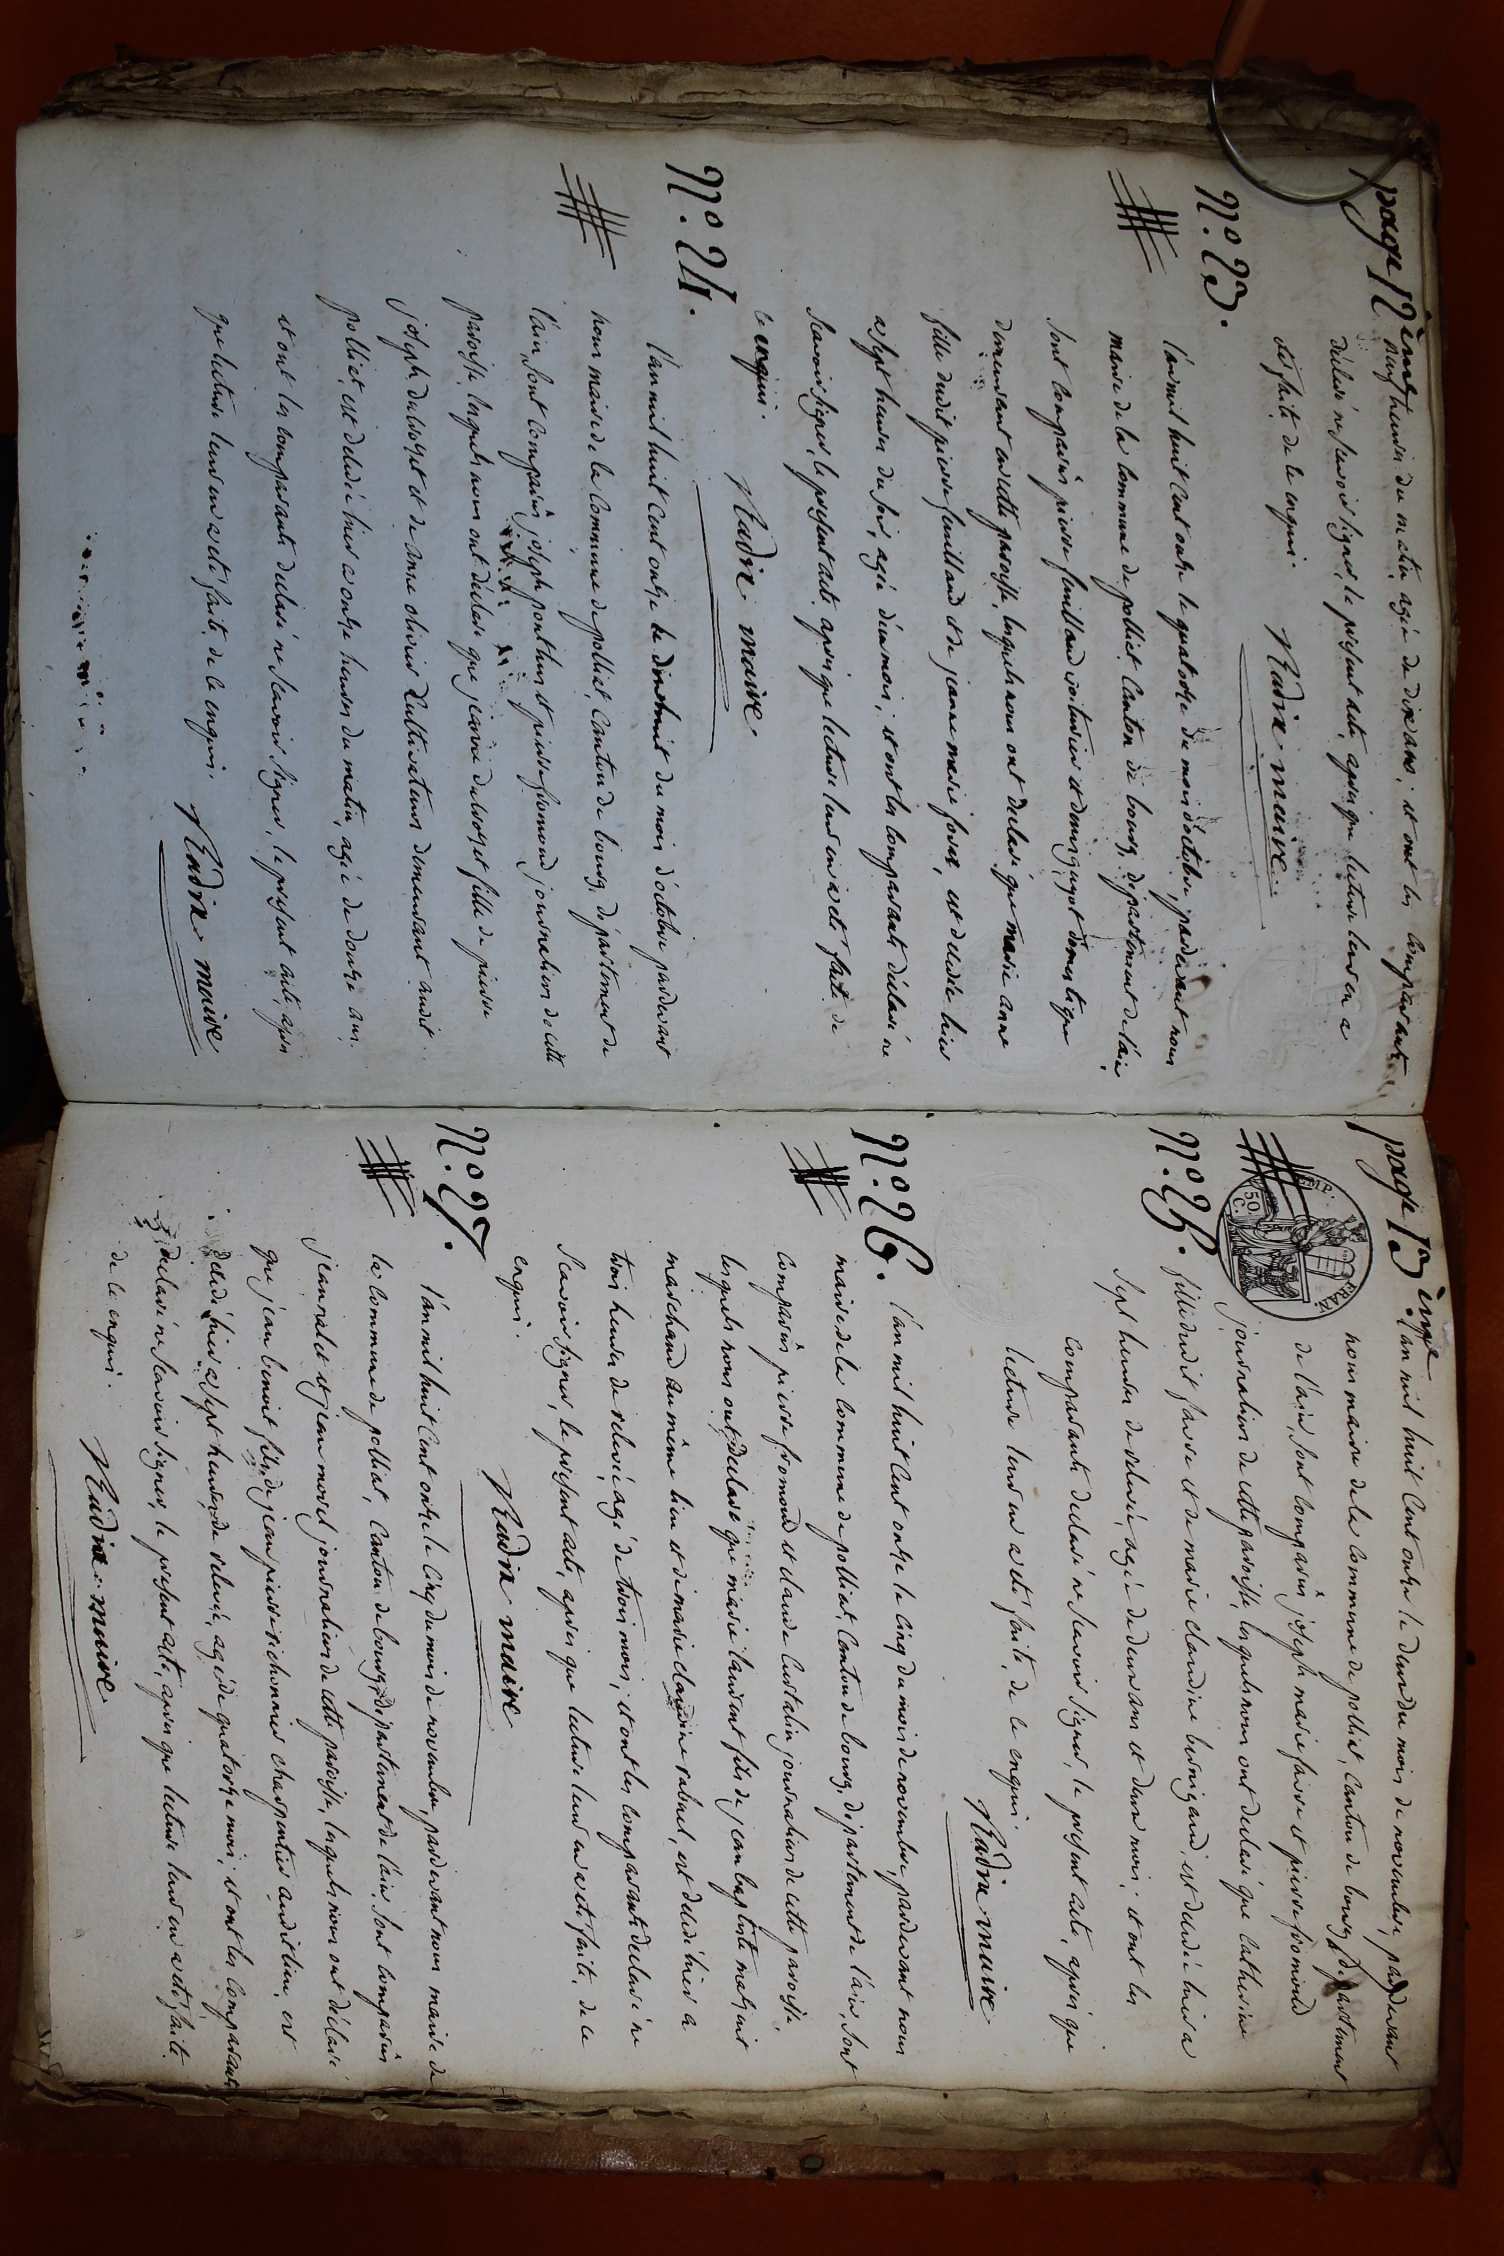 page 12ème
neuf heures du matin, agée de dix ans; et ont les comparants
déclaré ne scavoir signer, le présent acte, après que lecture leur en a
été faite de ce enquis.
maire
N.o 23.
l'an mil huit cent onze le quatorze du mois d'octobre, pardevant nous
maire de la commune de polliat, Canton de bourg, département de l'ain
sont comparûs pierre feuilland voiturier et denis guyot domestique
demeurant en cette paroisse, lesquels nous ont declaré que marie anne
fille dudit pierre feuilland et de jeanne marie is est décédée hier
a sept heures du soir, agée d'un mois; et ont les comparants déclaré ne
Scavoir signer, le présent acte, après que lecture leur en a été faite de
ce enquis.
maire
N.o 24.
l'an mil huit cent onze le dix huit du mois d'octobre pardevant
nous maire de la Commune de polliat, Canton de bourg, département de
l'ain, sont Comparûs joseph ponthus et pierre fromond journaliers de cette
paroisse, lesquels nous ont déclaré que jeanne duborget fille de pierre
joseph duborget et de olivier Cultivateurs demeurant audit
polliat, est décédée hier a onze heures du matin, agée de douze ans;
et ont les comparants declaré ne scavoir signer, le présent acte, après
que lecture leur en a été faite, de ce enquis.
maire
page 13ème
N.o 25.
l'an mil huit Cent onze le deux du mois de novembre, pardevant
nous maire de la commune de polliat, Canton de bourg, département
de l'ain, sont comparûs joseph marie favre et pierre fromond
journaliers de cette paroisse, lesquels nous ont declaré que Catherine
fille dudit favre et de marie claudine est décédée hier a
sept heures de relevée, agée de deux ans et deux mois; et ont les
comparants declaré ne scavoir signer, le présent acte, après que
lecture leur en a été faite, de ce enquis.
maire
N.o 26.
l'an mil huit Cent onze le cinq du mois de novembre, pardevant nous
maire de la commune de polliat, Canton de bourg, département de l'ain, sont
comparûs pierre fromond et claude journaliers de cette paroisse,
lesquels nous ont declaré que marie laurent fils de jean baptiste
marchand au même lieu et de marie claudine est decedé hier a
trois heures de relevée, agé de trois mois; et ont les comparants declaré ne
scavoir signer, le présent acte, après que lecture leur en a été faite, de ce
enquis.
maire
N.o 27.
l'an mil huit Cent onze le Cinq du mois de novembre, pardevant nous maire de
la commune de polliat, Canton de bourg, département de l'ain, sont comparûs
et jean morel journaliers de cette paroisse, lesquels nous ont déclaré
que jean benoit fils de jean pierre charpentier audit lieu, est
décédé hier a sept heures de relevée, agé de quatorze mois; et ont les comparants
declaré ne scavoir signer, le présent acte, après que lecture leur en a été faite
de ce enquis.
maire